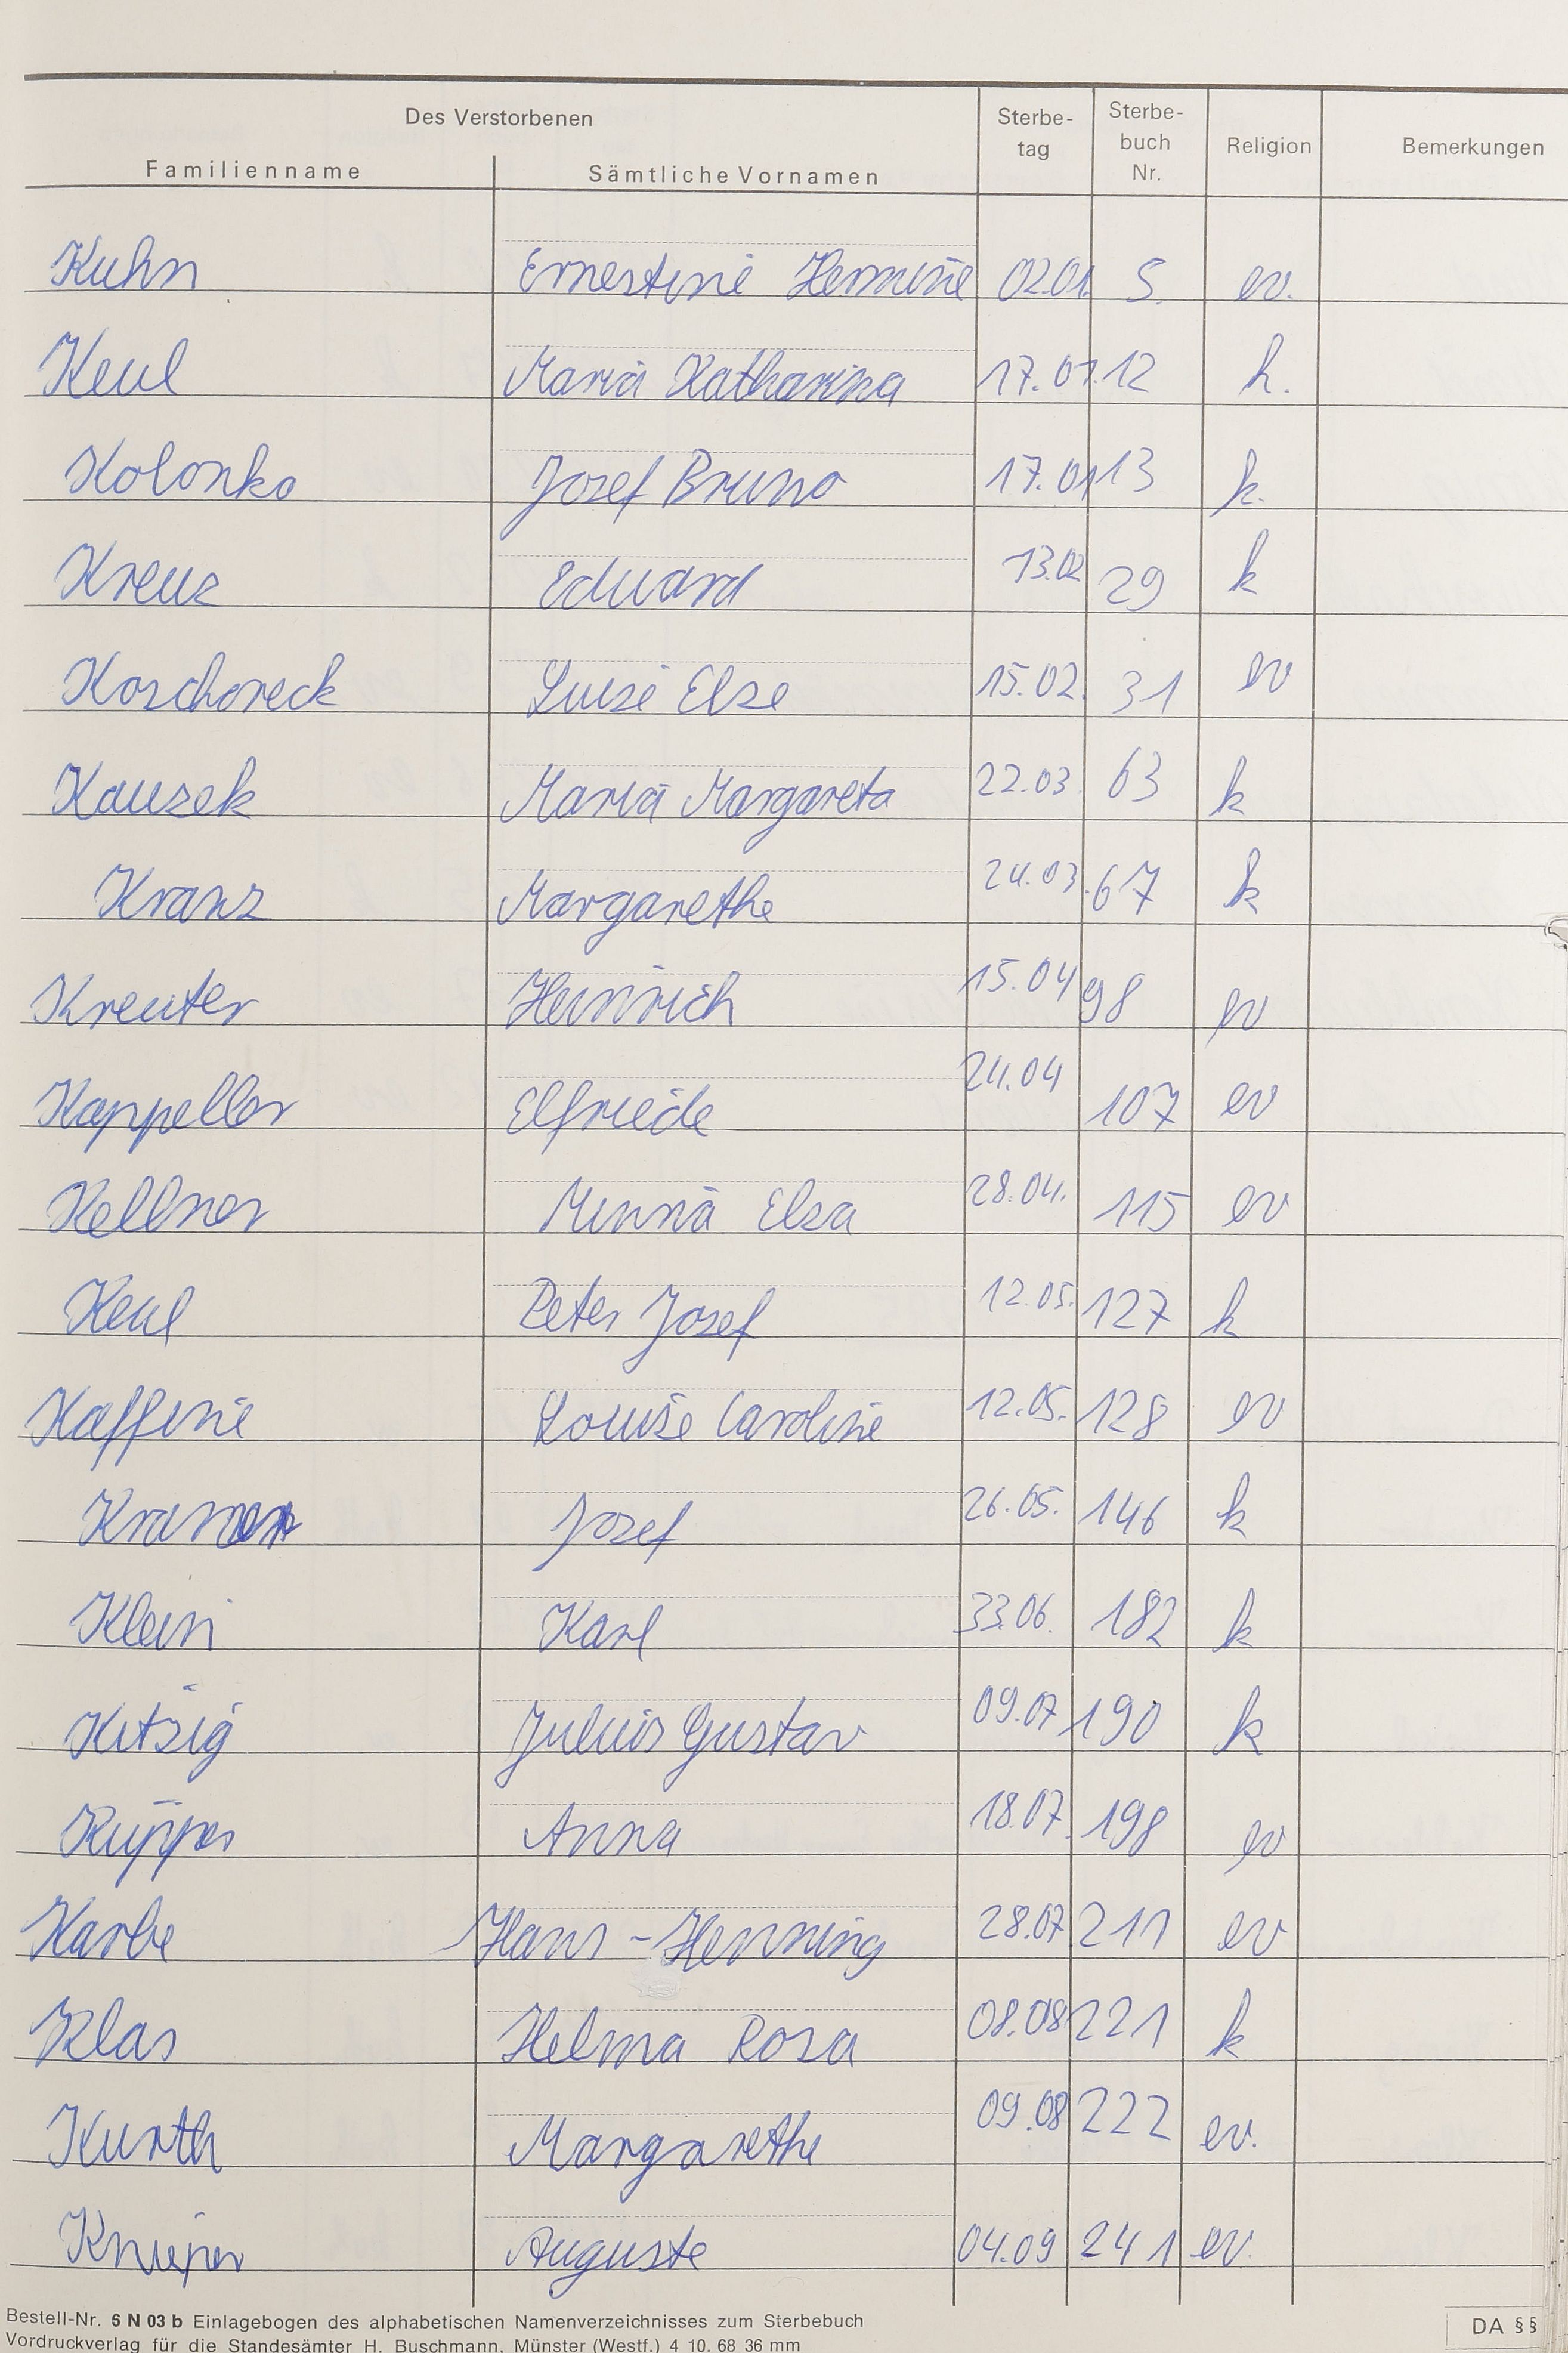 Des Verstorbenen
Familienname Sämtliche Vornamen Sterbe-tag Sterbe-buch Nr. Religion Bemerkungen
Kuhn Ernestine Hermine 02.01. 5. ev.
Keul Maria Katharina 17.01. 12 k.
Kolonko Josef Bruno 17.01 13 k.
Kreuz Eduard 13.02 29 k
Koschoreck Luise Else 15.02. 31 ev
Kauzek Maria Margareta 22.03. 63 k
Kranz Margarethe 24.03. 67 k
Kreuter Heinrich 15.04 98 ev
Kappeller Elfriede 24.04 107 ev
Kellner Minna Elsa 28.04. 115 ev
Keul Peter Josef 12.05. 127 k
Kaffine Louise Caroline 12.05. 128 ev
Josef 26.05. 146 k
Klein Karl 33.06. 182 k
Kitzig Julius Gustav 09.07 190 k
Küpper Anna 18.07. 198 ev
Karbe Hans-Henning 28.07. 211 ev
Klas Helma Rosa 08.08 221 k
Kurth Margarethe 09.08 222 ev.
Knieper Auguste 04.09 241 ev.
Bestell-Nr. 5 N 03 b Einlagebogen des alphabetischen Namenverzeichnisses zum Sterbebuch
Vordruckverlag für die Standesämter H. Buschmann, Münster (Westf.) 4 10. 68 36 mm
DA §§